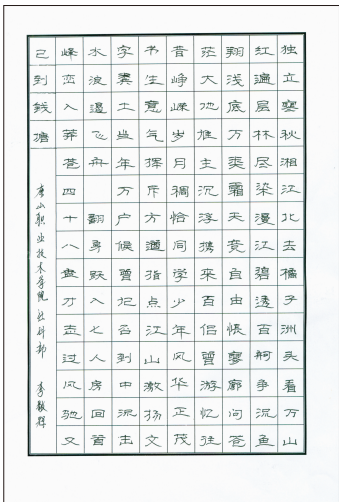 独立寒秋湘江北去橘子洲头看万山
红遍层林尽染漫江碧透百舸争流鱼
翔浅底万类霜天竞自由怅寥廓问苍
茫大地谁主沉浮携来百侣曾游忆往
昔峥嵘岁月稠恰同学少年风华正茂
书生意气挥斥方遒指点江山激扬文
字粪土当年万户侯曾记否到中流击
水浪遏飞舟 翻身跃入七人房回首
峰峦入莽苍四十八盘才走过风驰又
已到钱塘
唐山职业技术学院 社科部 李